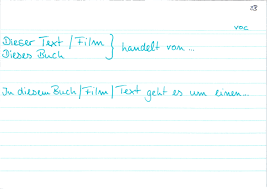 23
VOC
Dieser Text / Film } handelt von...
Dieses Buch
In diesem Buch/Film/Text geht es um einen...